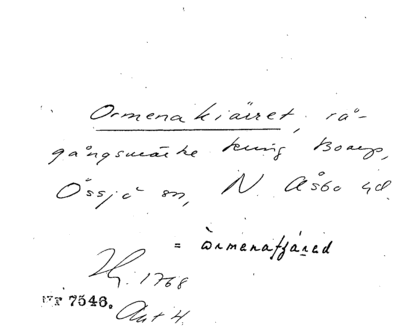 Ormenakiärret, rå-
gångsmärke kring Boarp,
Össjö sn, N. Åsbo hd.
= Ormenafjäred
Hy. 1768
7546. Akt 4.